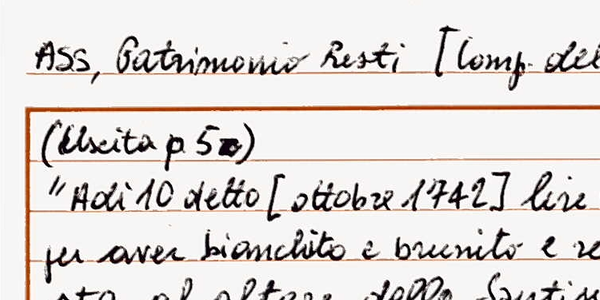 ASS, Patrimonio Resti [Comp. del
(Uscita p. 5
"Adi 10 detto [ottobre 1742] lire
per aver bianchito e brunito e re
sta al altare della Santiss